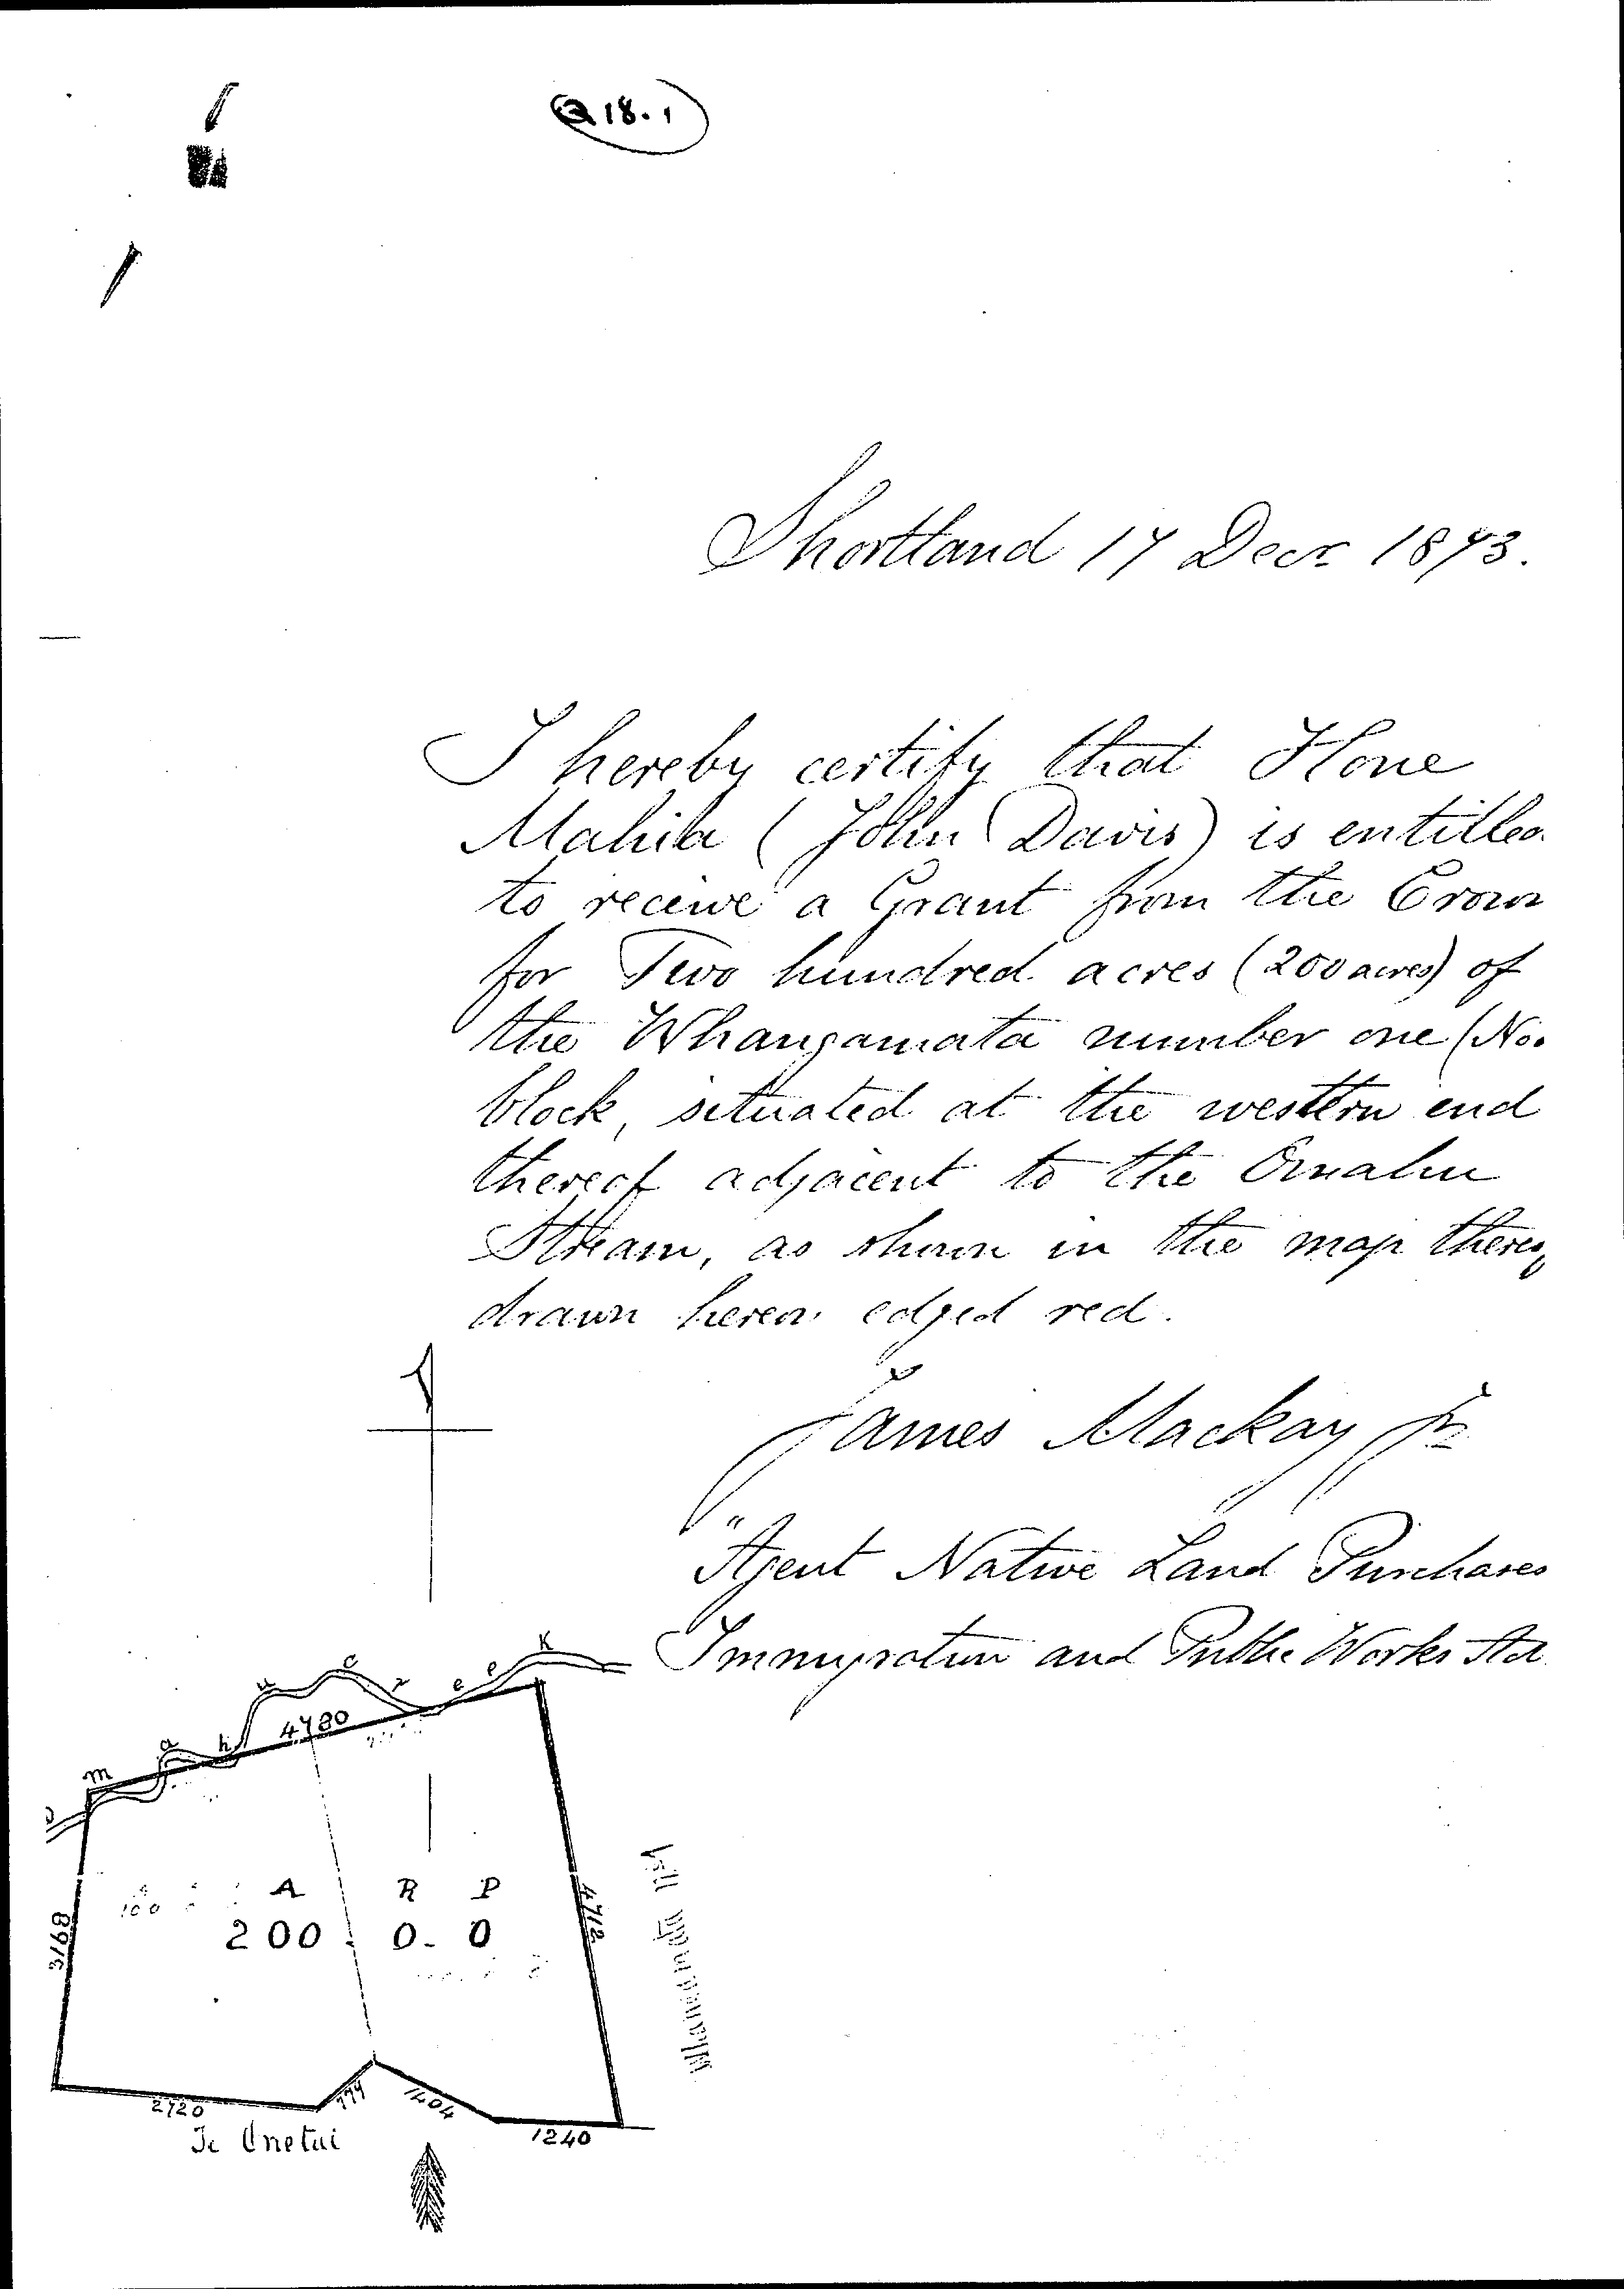 18.1
Shortland 17 Decr 1873.
I hereby certify that Hone
Mahia (John Davis) is entitled
to receive a Grant from the Crown
for Two hundred acres (200 acres) of
the Whangamata number one (No.
block, situated at the western end
thereof adjacent to the Omahu
Stream, as shown in the map thereof
drawn hereon edged red.
James Mackay Jr
Agent Native Land Purchases
Immigration and Public Works
Omahu Creek
4780
A R P
200. 0. 0
100
3168
4712
Whangamata No 1
2720
774
1404
1240
Te Onetai